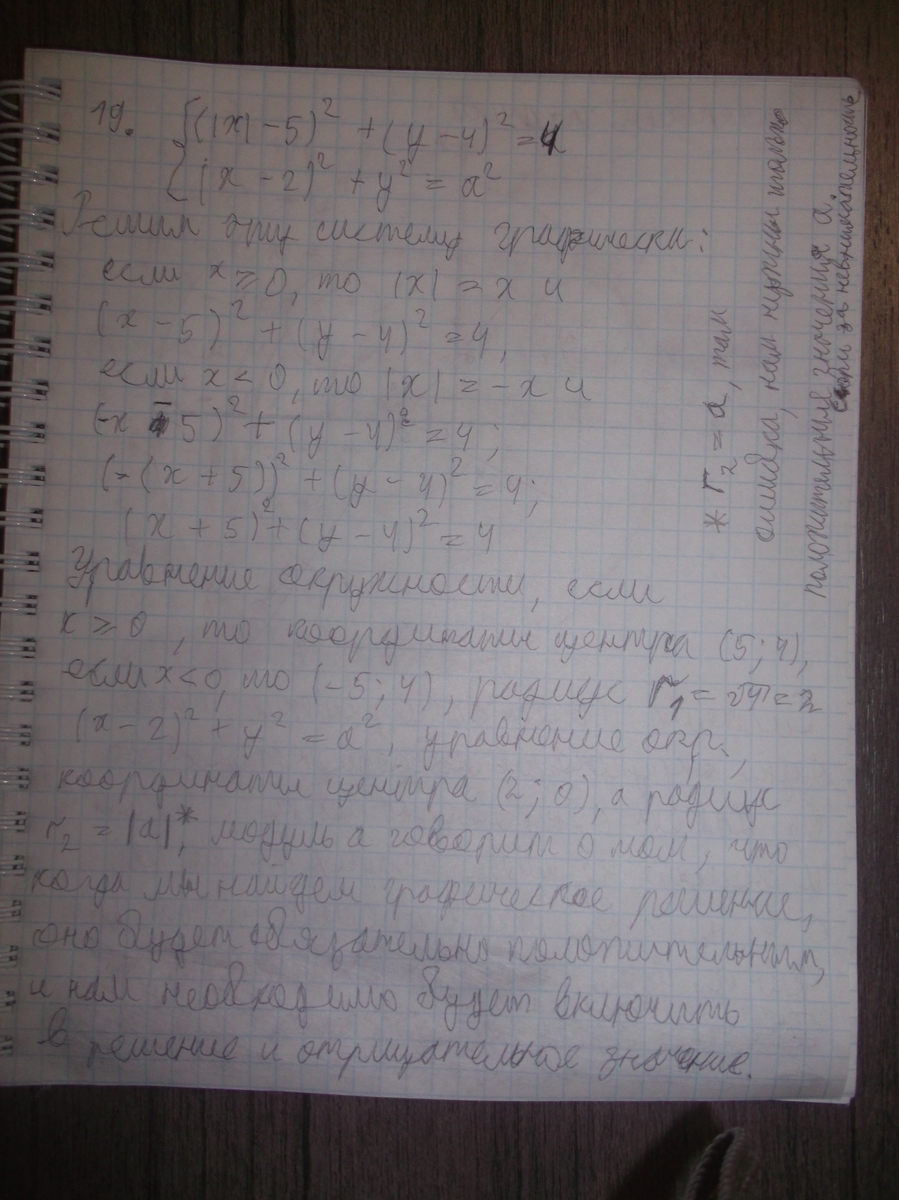 19. {(|x| - 5)² + (y - 4)² = 4
{(x - 2)² + y² = a²
Решим эту систему графически:
если x ≥ 0, то |x| = x и
(x - 5)² + (y - 4)² = 4,
если x < 0, то |x| = -x и
(-x - 5)² + (y - 4)² = 4;
(-(x + 5))² + (y - 4)² = 4;
(x + 5)² + (y - 4)² = 4
Уравнение окружности, если
x ≥ 0, то координаты центра (5; 4),
если x < 0, то (-5; 4), радиус r₁ = √4 = 2
(x - 2)² + y² = a², уравнение окр.,
координаты центра (2; 0), а радиус
r₂ = |a|*, модуль а говорит о том, что
когда мы найдем графическое решение,
оно будет обязательно положительным,
и нам необходимо будет включить
в решение и отрицательное значение.
* r₂ = a, там
ошибка, нам нужны только
положительные значения а.
сори за невнимательность